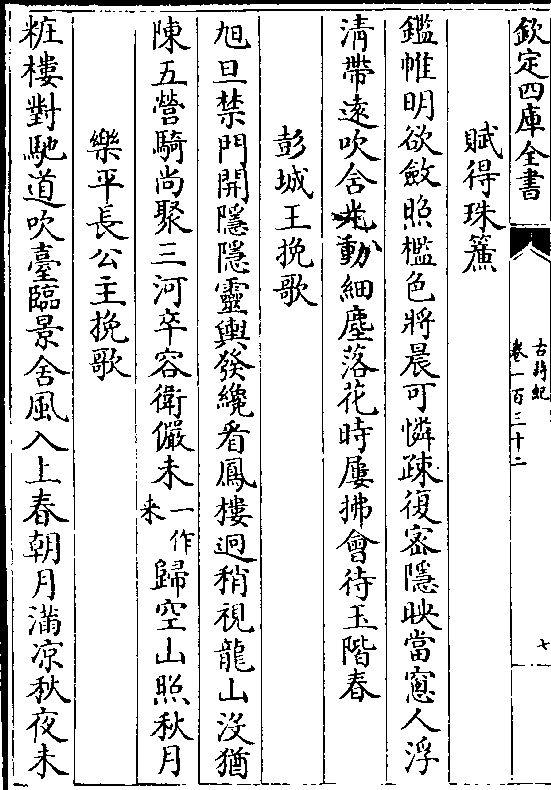 欽定四庫全書
古詩紀
卷一百三十二
七
賦得珠簾
鑑帷明欲斂照檻色將晨可憐疎復密隱映當窻人浮
清帶逺吹含光動細塵落花時屢拂會待玉階春
彭城王挽歌
旭旦禁門開隱隱靈輿發纔看鳳樓迥稍視龍山沒猶
陳五營騎尚聚三河卒容衛儼未一作来歸空山照秋月
樂平長公主挽歌
粧樓對馳道吹臺臨景舍風入上春朝月滿凉秋夜未